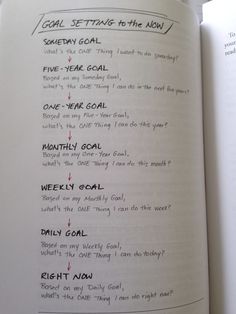 GOAL SETTING to the NOW
SOMEDAY GOAL
What's the ONE Thing I want to do someday?
FIVE-YEAR GOAL
Based on my Someday Goal,
what's the ONE Thing I can do in the next five years?
ONE-YEAR GOAL
Based on my Five-Year Goal,
what's the ONE Thing I can do this year?
MONTHLY GOAL
Based on my One-Year Goal,
what's the ONE Thing I can do this month?
WEEKLY GOAL
Based on my Monthly Goal,
what's the ONE Thing I can do this week?
DAILY GOAL
Based on my Weekly Goal,
what's the ONE Thing I can do today?
RIGHT NOW
Based on my Daily Goal,
what's the ONE Thing I can do right now?
To
your
read